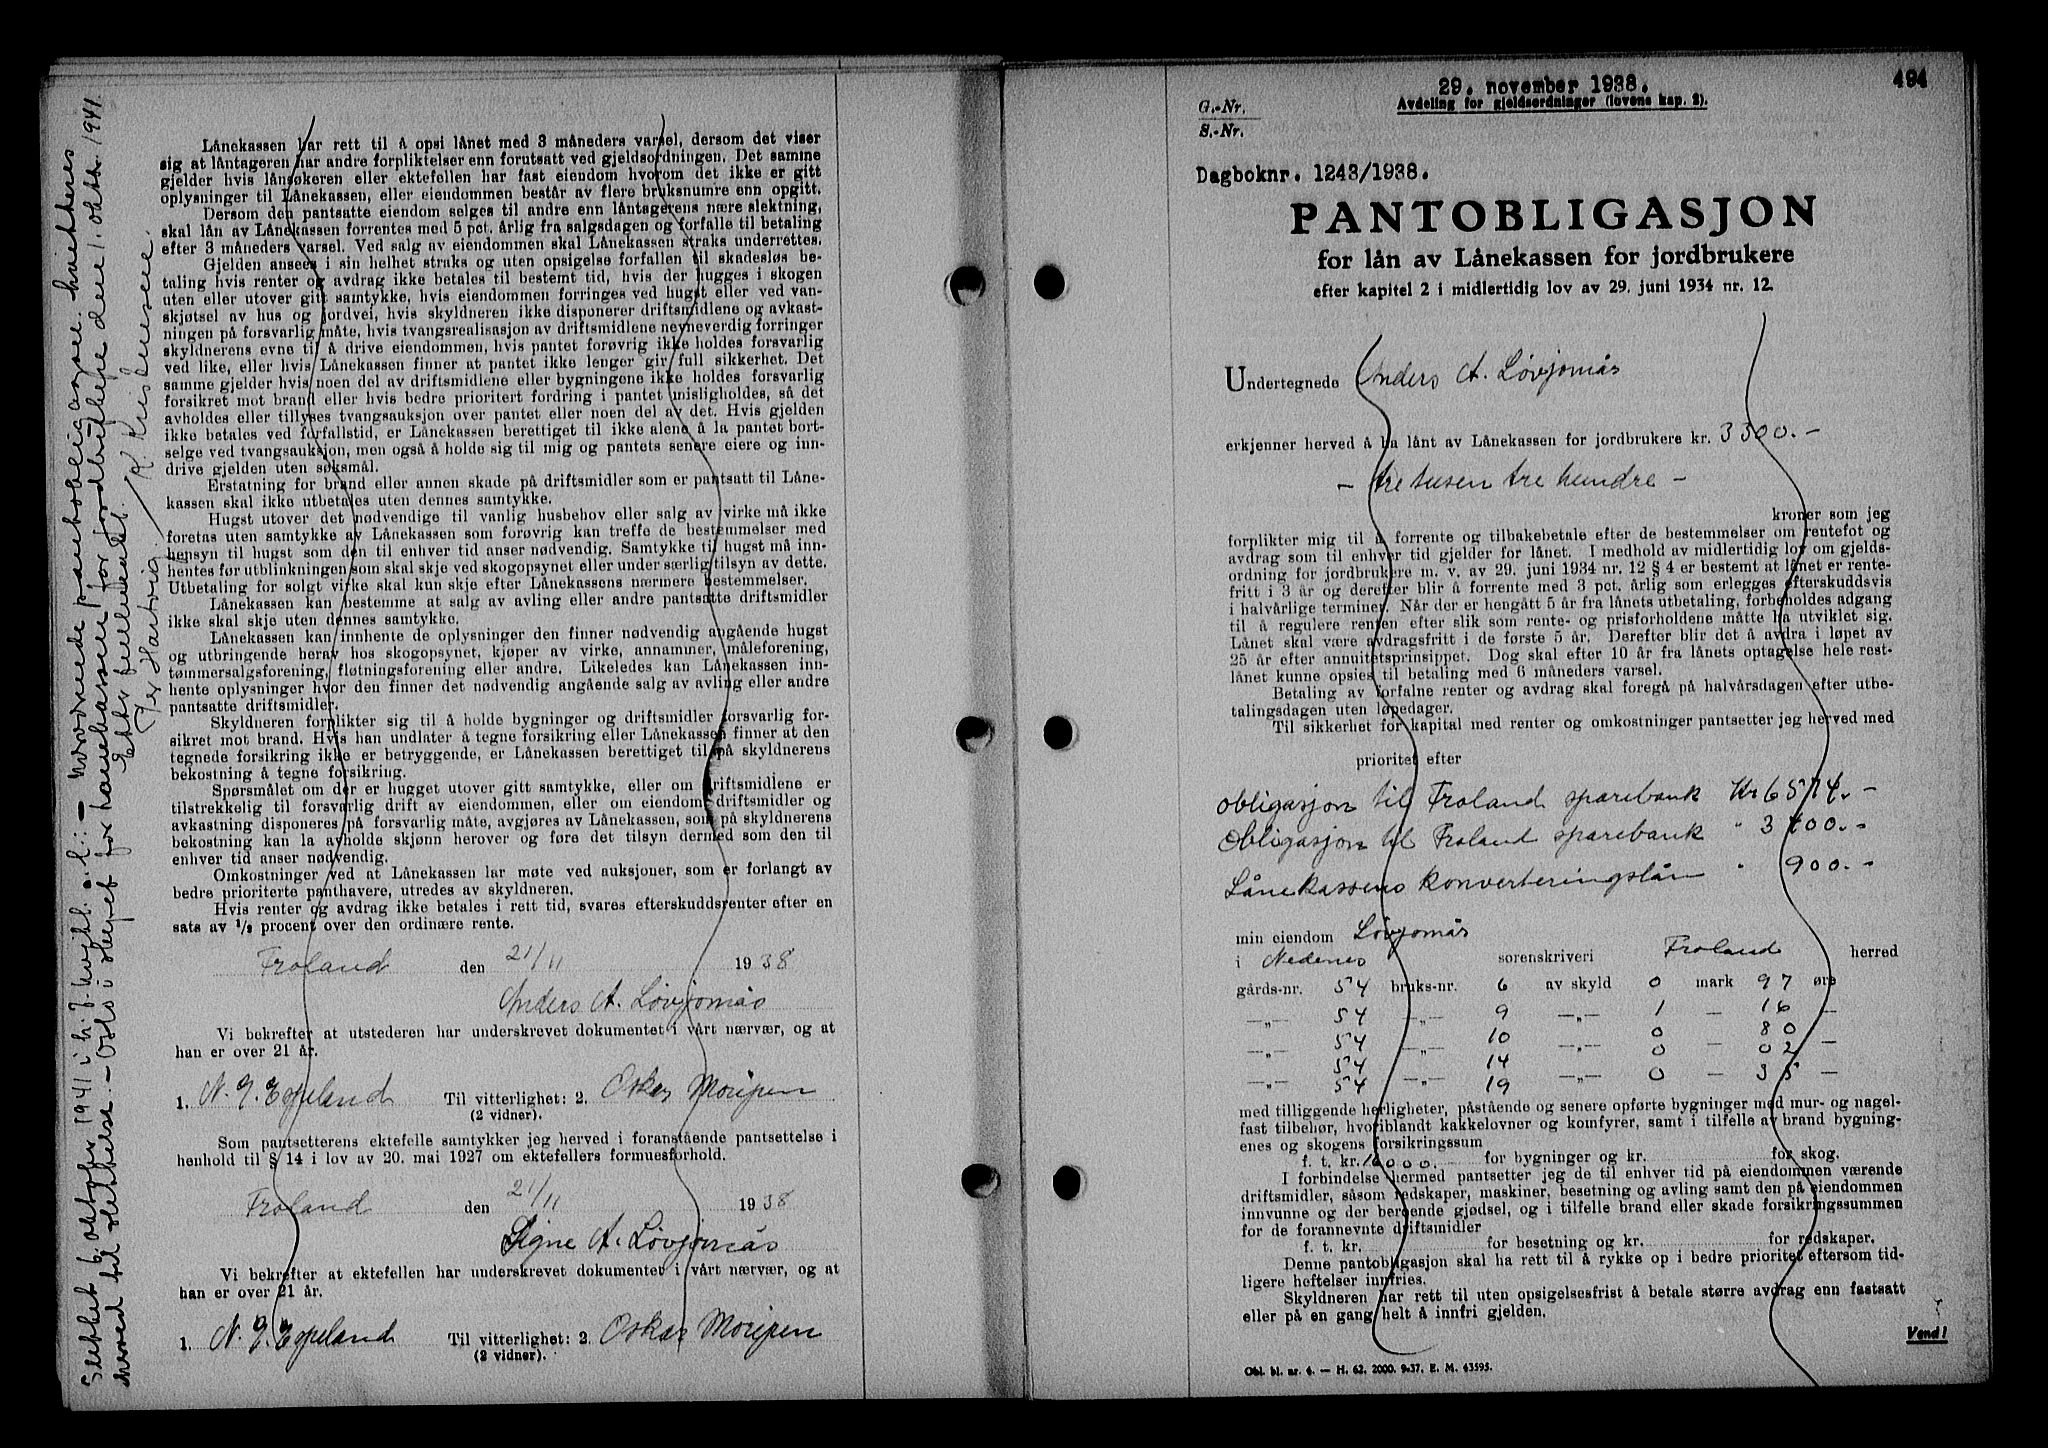 Lånekassen har rett til å opsi lånet med 3 måneders varsel, dersom det viser
sig at låntageren har andre forpliktelser enn forutsatt ved gjeldsordningen. Det samme
gjelder hvis lånsøkeren eller ektefellen har fast eiendom hvorom det ikke er gitt
oplysninger til Lånekassen, eller eiendommen består av flere bruksnumre enn opgitt.
Dersom den pantsatte eiendom selges til andre enn låntagerens nære slektning,
skal lån av Lånekassen forrentes med 5 pct. årlig fra salgsdagen og forfalle til betaling
efter 3 måneders varsel. Ved salg av eiendommen skal Lånekassen straks underrettes.
Gjelden ansees i sin helhet straks og uten opsigelse forfallen til skadesløs be-
taling hvis renter og avdrag ikke betales til bestemt tid, hvis der hugges i skogen
uten eller utover gitt samtykke, hvis eiendommen forringes ved hugst eller ved van-
skjøtsel av hus og jordvei, hvis skyldneren ikke disponerer driftsmidlene og avkast-
ningen på forsvarlig måte, hvis tvangsrealisasjon av driftsmidlene nevneverdig forringer
skyldnerens evne til å drive eiendommen, hvis pantet forøvrig ikke holdes forsvarlig
ved like, eller hvis Lånekassen finner at pantet ikke lenger gir full sikkerhet. Det
samme gjelder hvis noen del av driftsmidlene eller bygningene ikke holdes forsvarlig
forsikret mot brand eller hvis bedre prioritert fordring i pantet misligholdes, så det
avholdes eller tillyses tvangsauksjon over pantet eller noen del av det. Hvis gjelden
ikke betales ved forfallstid, er Lånekassen berettiget til ikke alene å la pantet bort-
selge ved tvangsauksjon, men også å holde sig til mig og pantets senere eiere og inn-
drive gjelden uten søksmål.
Erstatning for brand eller annen skade på driftsmidler som er pantsatt til Låne-
kassen skal ikke utbetales uten dennes samtykke.
Hugst utover det nødvendige til vanlig husbehov eller salg av virke må ikke
foretas uten samtykke av Lånekassen som forøvrig kan treffe de bestemmelser med
hensyn til hugst som den til enhver tid anser nødvendig. Samtykke til hugst må inn-
hentes før utblinkningen som skal skje ved skogopsynet eller under særlig tilsyn av dette.
Utbetaling for solgt virke skal kun skje efter Lånekassens nærmere bestemmelser.
Lånekassen kan bestemme at salg av avling eller andre pantsatte driftsmidler
ikke skal skje uten dennes samtykke.
Lånekassen kan innhente de oplysninger den finner nødvendig angående hugst
og utbringende herav hos skogopsynet, kjøper av virke, annammer, måleforening,
tømmersalgsforening, fløtningsforening eller andre. Likeledes kan Lånekassen inn-
hente oplysninger hvor den finner det nødvendig angående salg av avling eller andre
pantsatte driftsmidler.
Skyldneren forplikter sig til å holde bygninger og driftsmidler forsvarlig for-
sikret mot brand. Hvis han undlater å tegne forsikring eller Lånekassen finner at den
tegnede forsikring ikke er betryggende, er Lånekassen berettiget til på skyldnerens
bekostning å tegne forsikring.
Spørsmålet om der er hugget utover gitt samtykke, eller om driftsmidlene er
tilstrekkelig til forsvarlig drift av eiendommen, eller om eiendom driftsmidler og
avkastning disponeres på forsvarlig måte, avgjøres av Lånekassen, som på skyldnerens
bekostning kan la avholde skjønn herover og føre det tilsyn dermed som den til
enhver tid anser nødvendig.
Omkostninger ved at Lånekassen lar møte ved auksjoner, som er forlangt av
bedre prioriterte panthavere, utredes av skyldneren.
Hvis renter og avdrag ikke betales i rett tid, svares efterskuddsrenter efter en
sats av 1/2 procent over den ordinære rente.
Froland den 21/11 1938
Anders A. Løvjomås
Vi bekrefter at utstederen har underskrevet dokumentet i vårt nærvær, og at
han er over 21 år.
1. N. J. Espeland Til vitterlighet: 2. Oskar Moripen
(2 vidner).
Som pantsetterens ektefelle samtykker jeg herved i foranstående pantsettelse i
henhold til § 14 i lov av 20. mai 1927 om ektefellers formuesforhold.
Froland den 21/11 1938
Signe A. Løvjomås
Vi bekrefter at ektefellen har underskrevet dokumentet i vårt nærvær, og at
han er over 21 år.
1. N. J. Espeland Til vitterlighet: 2. Oskar Moripen
(2 vidner).
Slettet 6. oktober 1941 i h. t. påtegn. : - Nærværende pantobligasjon kvitteres
herved til slettelse. - Oslo i styret for lånekassen for jordbrukere den 1. oktbr. 1941.
Efter fullmakt.
Jer Hartvig. / K. Kristensen.
29. november 1938.
494
Avdeling for gjeldsordninger (lovens kap. 2).
G.-Nr.
S.-Nr.
Dagboknr. 1243/1938.
PANTOBLIGASJON
for lån av Lånekassen for jordbrukere
efter kapitel 2 i midlertidig lov av 29. juni 1934 nr. 12.
Undertegnede Anders A. Løvjomås
erkjenner herved å ha lånt av Lånekassen for jordbrukere kr. 3300.-
- tre tusen tre hundre -
kroner som jeg
forplikter mig til å forrente og tilbakebetale efter de bestemmelser om rentefot og
avdrag som til enhver tid gjelder for lånet. I medhold av midlertidig lov om gjelds-
ordning for jordbrukere m. v. av 29. juni 1934 nr. 12 § 4 er bestemt at lånet er rente-
fritt i 3 år og derefter blir å forrente med 3 pct. årlig som erlegges efterskuddsvis
i halvårlige terminer. Når der er hengått 5 år fra lånets utbetaling, forbeholdes adgang
til å regulere renten efter slik som rente- og prisforholdene måtte ha utviklet sig.
Lånet skal være avdragsfritt i de første 5 år. Derefter blir det å avdra i løpet av
25 år efter annuitetsprinsippet. Dog skal efter 10 år fra lånets optagelse hele rest-
lånet kunne opsies til betaling med 6 måneders varsel.
Betaling av forfalne renter og avdrag skal foregå på halvårsdagen efter utbe-
talingsdagen uten løpedager.
Til sikkerhet for kapital med renter og omkostninger pantsetter jeg herved med
prioritet efter
obligasjon til Froland sparebank Kr 6574.-
Obligasjon til Froland sparebank " 3400.-
Lånekassens konverteringslån " 900.-
min eiendom Løvjomås
i Nedenes sorenskriveri Froland herred
gårds-nr. 54 bruks-nr. 6 av skyld 0 mark 97 øre
—„— 54 —„— 9 —„— 1 — 16 —
—„— 54 —„— 10 —„— 0 — 80 —
54 14 0 02 —
—„— 54 —„— 19 —„— 0 — 35 —
med tilliggende herligheter, påstående og senere opførte bygninger med mur- og nagel-
fast tilbehør, hvoriblandt kakkelovner og komfyrer, samt i tilfelle av brand bygning-
enes og skogens forsikringssum
f. t. kr. 10000.- for bygninger og kr. for skog.
I forbindelse hermed pantsetter jeg de til enhver tid på eiendommen værende
driftsmidler, såsom redskaper, maskiner, besetning og avling samt den på eiendommen
innvunne og der beroende gjødsel, og i tilfelle brand eller skade forsikringssummen
for de forannevnte driftsmidler
f. t. kr. for besetning og kr. for redskaper.
Denne pantobligasjon skal ha rett til å rykke op i bedre prioritet eftersom tid-
ligere heftelser innfries.
Skyldneren har rett til uten opsigelsesfrist å betale større avdrag enn fastsatt
eller på en gang helt å innfri gjelden.
Vend!
Obl. bl. nr. 4. — H. 62. 2000. 9-37. E. M. 43595.